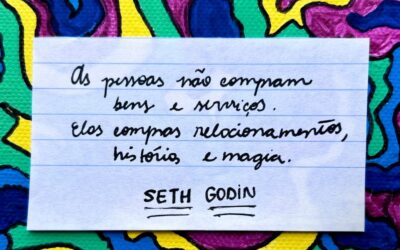 As pessoas não compram
bens e serviços.
Elas compras relacionamentos,
história e magia.
SETH GODIN